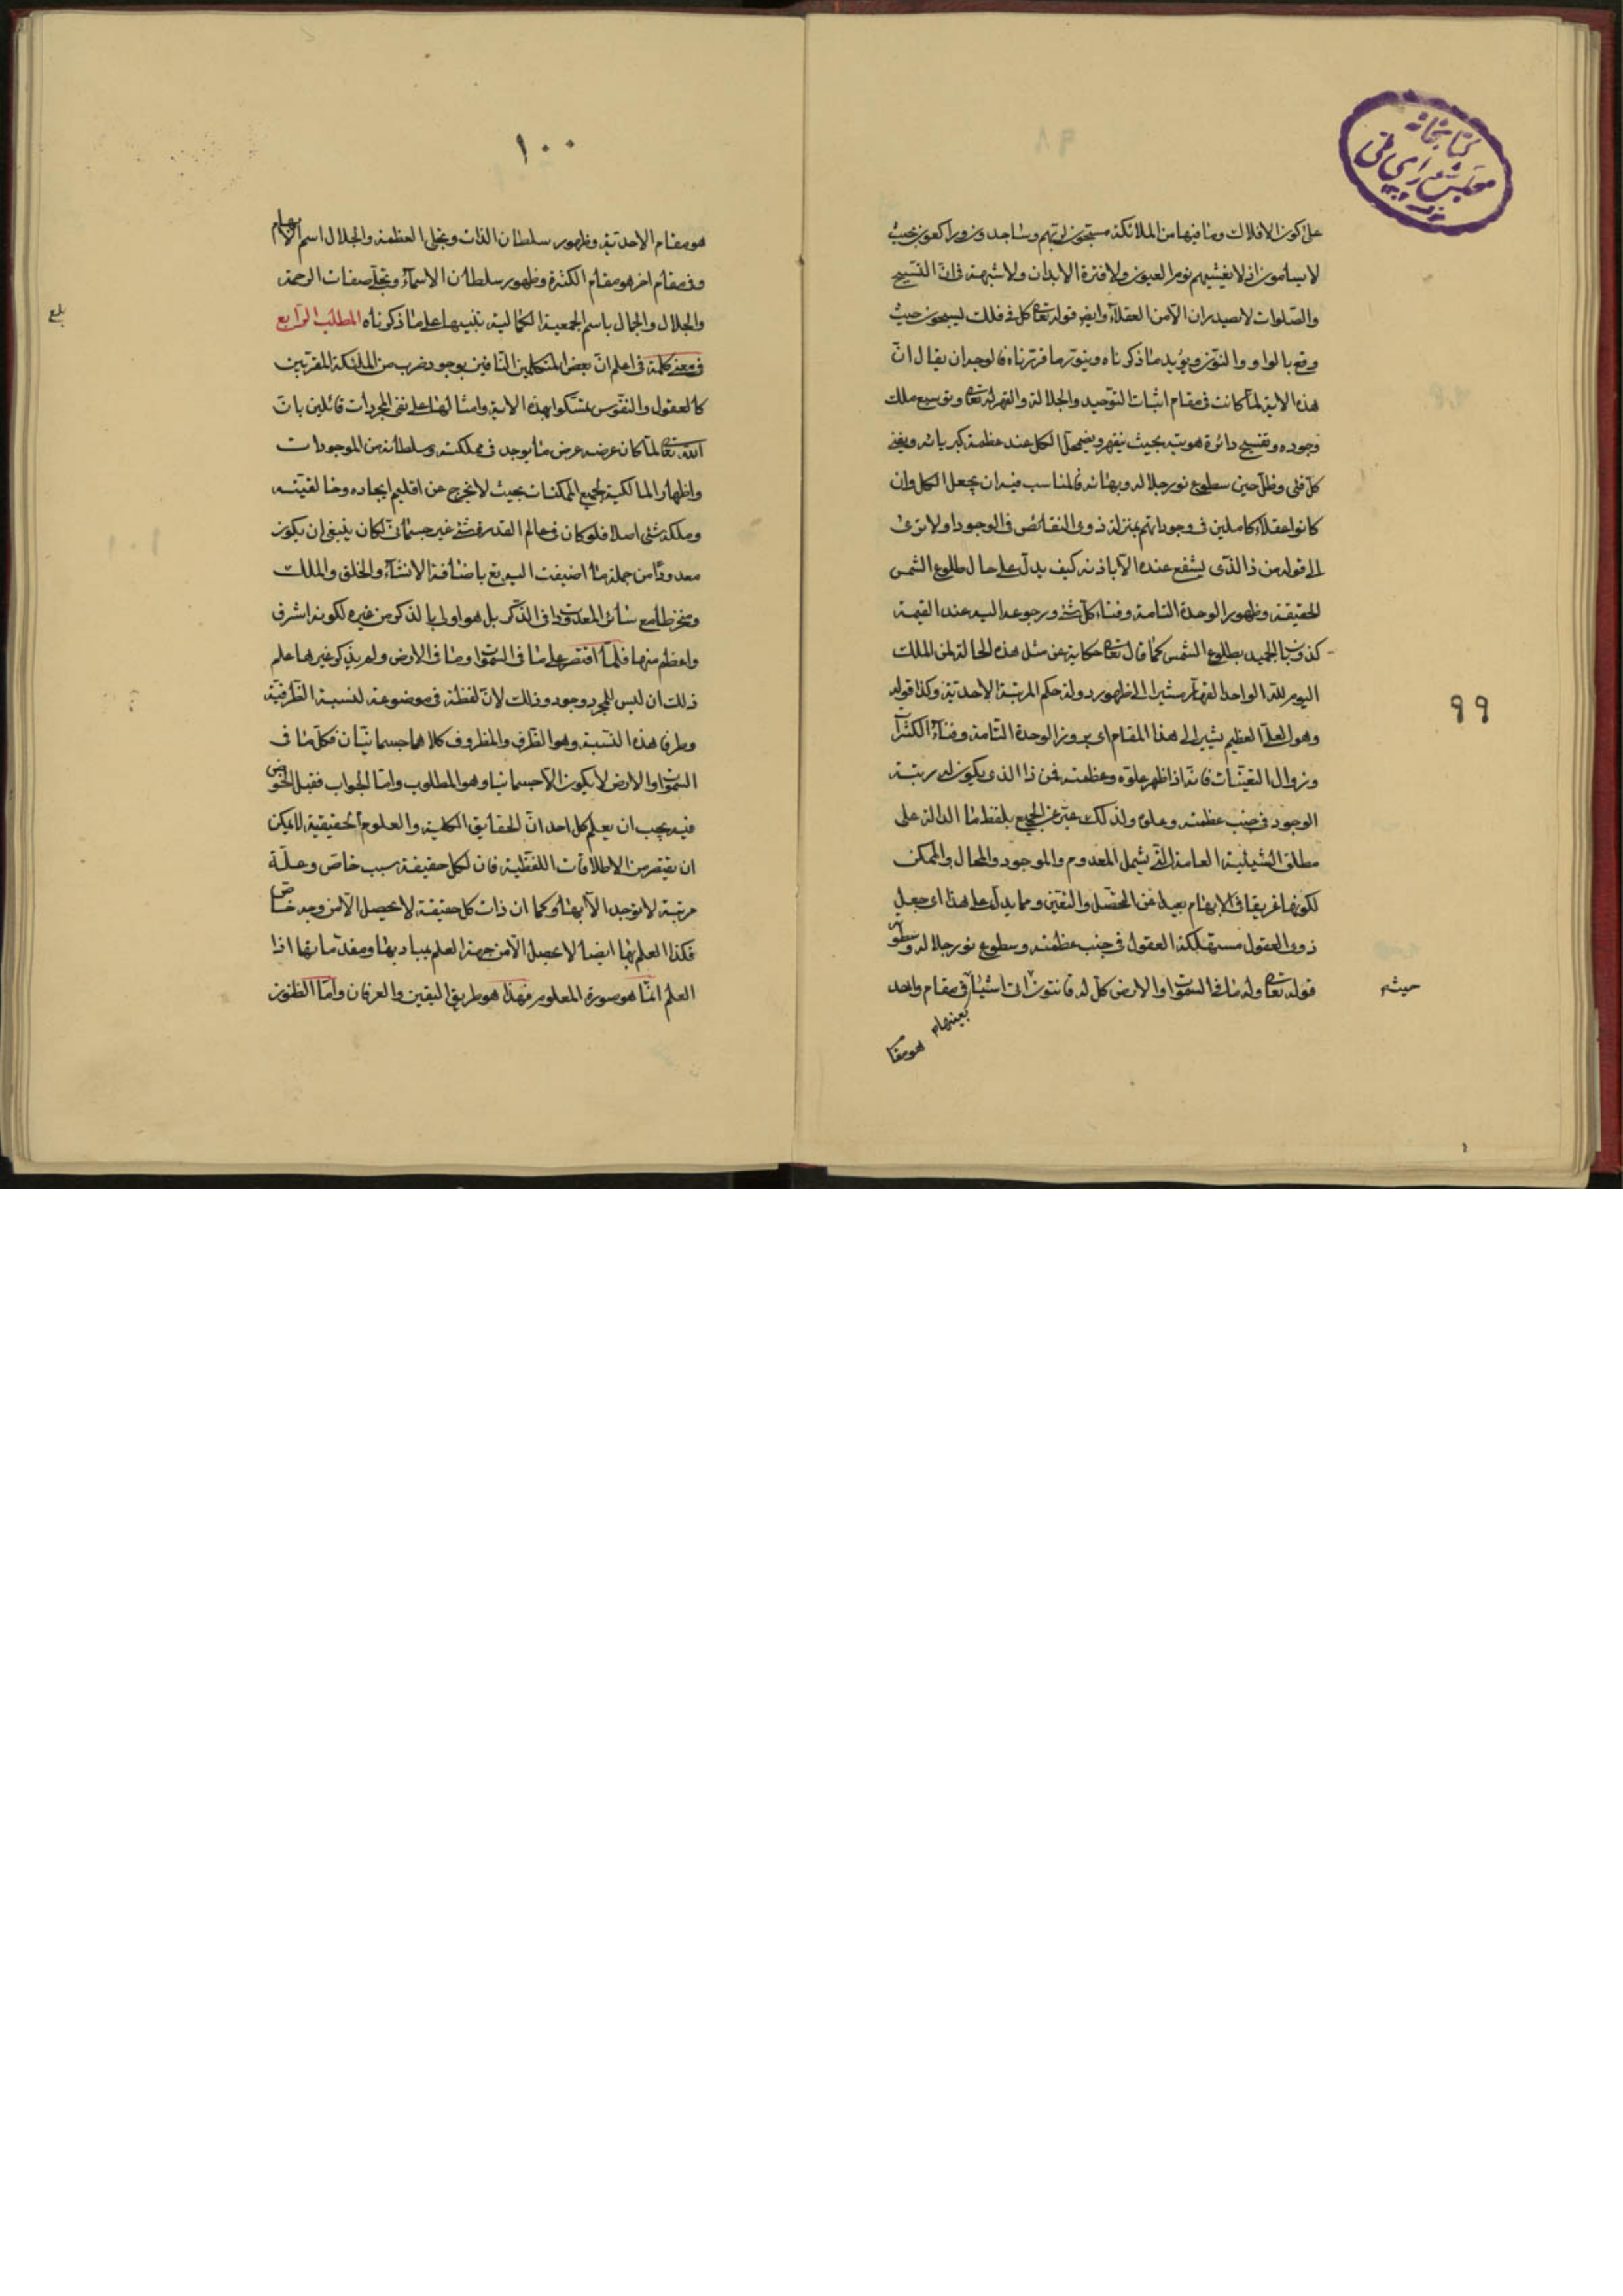 کتابخانه
مجلس شورای ملی
۹۹
على كون الافلاك وما فيها من الملائكة مسبحون لربهم وساجدون وراكعون حيث
لا يسأمون اذ لا يغشيهم نوم العيون ولا فترة الابدان ولا شبهة في ان التسبيح
والصلوات لا يصدران الا من العقلاء وايضا قوله تعالى كل في فلك يسبحون حيث
وقع بالواو والنون ويؤيد ما ذكرناه وينور ما قررناه في الوجه ان يقال ان
هذه الاية لما كانت في مقام اثبات التوحيد والجلالة والقهر له تعالى وتوسيع ملك
وجوده وتفسيح دائرة هويته بحيث ينقهر ويضمحل الكل عند عظمة كبريائه ويفنى
كل فئ وظل حين سطوع نور جلاله وبهائه فالمناسب فيه ان يجعل الكل وان
كانوا عقلاء كاملين في وجوداتهم بمنزلة ذوى النقائص في الوجود او لا ترى
الى قوله من ذا الذى يشفع عنده الا باذنه كيف يدل على حال طلوع الشمس
الحقيقة وظهور الوحدة التامة وفناء كل شئ ورجوعه اليه عند القيمة
بطلوع الشمس كما قال تعالى حكاية عن مثل هذه الحالة لمن الملك
اليوم لله الواحد القهار مشيرا الى ظهور دولة حكم المرتبة الاحدية وكذا قوله
وهو العلى العظيم يشير الى هذا المقام اى بروز الوحدة التامة وفناء الكثرات
وزوال التعينات فانه اذا ظهر علوه وعظمته فمن ذا الذى يكون له رتبة
الوجود في جنب عظمته وعلوه ولذلك عبر عن الجميع بلفظ ما الدالة على
مطلق الشيئية العامة التى يشمل المعدوم والموجود والمحال والممكن
لكونها غريقا في الابهام بعيدا عن التحصل والتعين ومما يدل على هذا اى جعل
ذوى العقول مستهلكة العقول في جنب عظمته وسطوع نور جلاله وسطوته
قوله تعالى وله ما في السموات والارض كل له قانتون اتى اشياء في مقام واحد
حيث
بعينها
هو مقام
۱۰۰
هو مقام الاحدية وظهور سلطان الذات وتجلى العظمة والجلال اسم الابهام
وفي مقام اخر هو مقام الكثرة وظهور سلطان الاسماء وتجلى صفات الرحمة
والجلال والجمال باسم الجمعية الكمالية تنبيها على ما ذكرناه المطلب الرابع
بلغ
في معنى كلمة في اعلم ان بعض المتكلمين النافين بوجود ضرب من الملئكة المقربين
كالعقول والنفوس تمسكوا بهذه الاية وامثالها على نفى المجردات قائلين بان
الله تعالى لما كان غرضه عرض ما يوجد في مملكته وسلطانه من الموجودات
واظهار المالكية لجميع الممكنات بحيث لا يخرج عن اقليم ايجاده وخالقيته
وملكه شئ اصلا فلو كان في عالم القدرة شئ غير جسمانى لكان ينبغى ان يكون
معدودا من جملة ما اضيفت اليه تع باضافة الانشاء والخلق والملك
ومنخرطا مع سائر المعدودات في الذكر بل هو اولى بالذكر من غيره لكونه اشرف
واعظم منها فلما اقتصر على ما في السموات وما في الارض ولم يذكر غيرها علم
ذلك ان ليس للمجرد وجود وذلك لان لفظة في موضوعة لنسبة الظرفية
وطرفا هذه النسبة وهو الظرف والمظروف كلاهما جسمانيان فكل ما في
السموات والارض لا يكون الا جسمانيا وهو المطلوب واما الجواب فقبل الخوض
فيه يجب ان يعلم كل احد ان الحقايق الكلية والعلوم الحقيقية لا يمكن
ان يقتنص من الاطلاقات اللفظية فان لكل حقيقة سبب خاص وعلة
مرتبة لا توجد الا بها وكما ان ذات كل حقيقة لا يحصل الا من وجه خاص
فكذا العلم بها ايضا لا يحصل الا من جهة العلم بمباديها ومقدماتها اذا
العلم انما هو صورة المعلوم فهذا هو طريق اليقين والعرفان واما الظنون